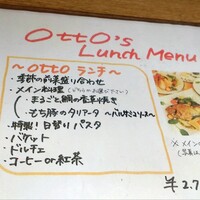 OttO's
Lunch Menu
～OttO ランチ～
・季節の前菜盛り合わせ
・メイン料理(どちらかお選び下さい)
・まるごと鯛の香草焼き
・もち豚のタリアータ ～バルサミコソース～
・特製!日替りパスタ
・バゲット
・ドルチェ
・コーヒーor紅茶
※メイン
(写真は
¥2.7